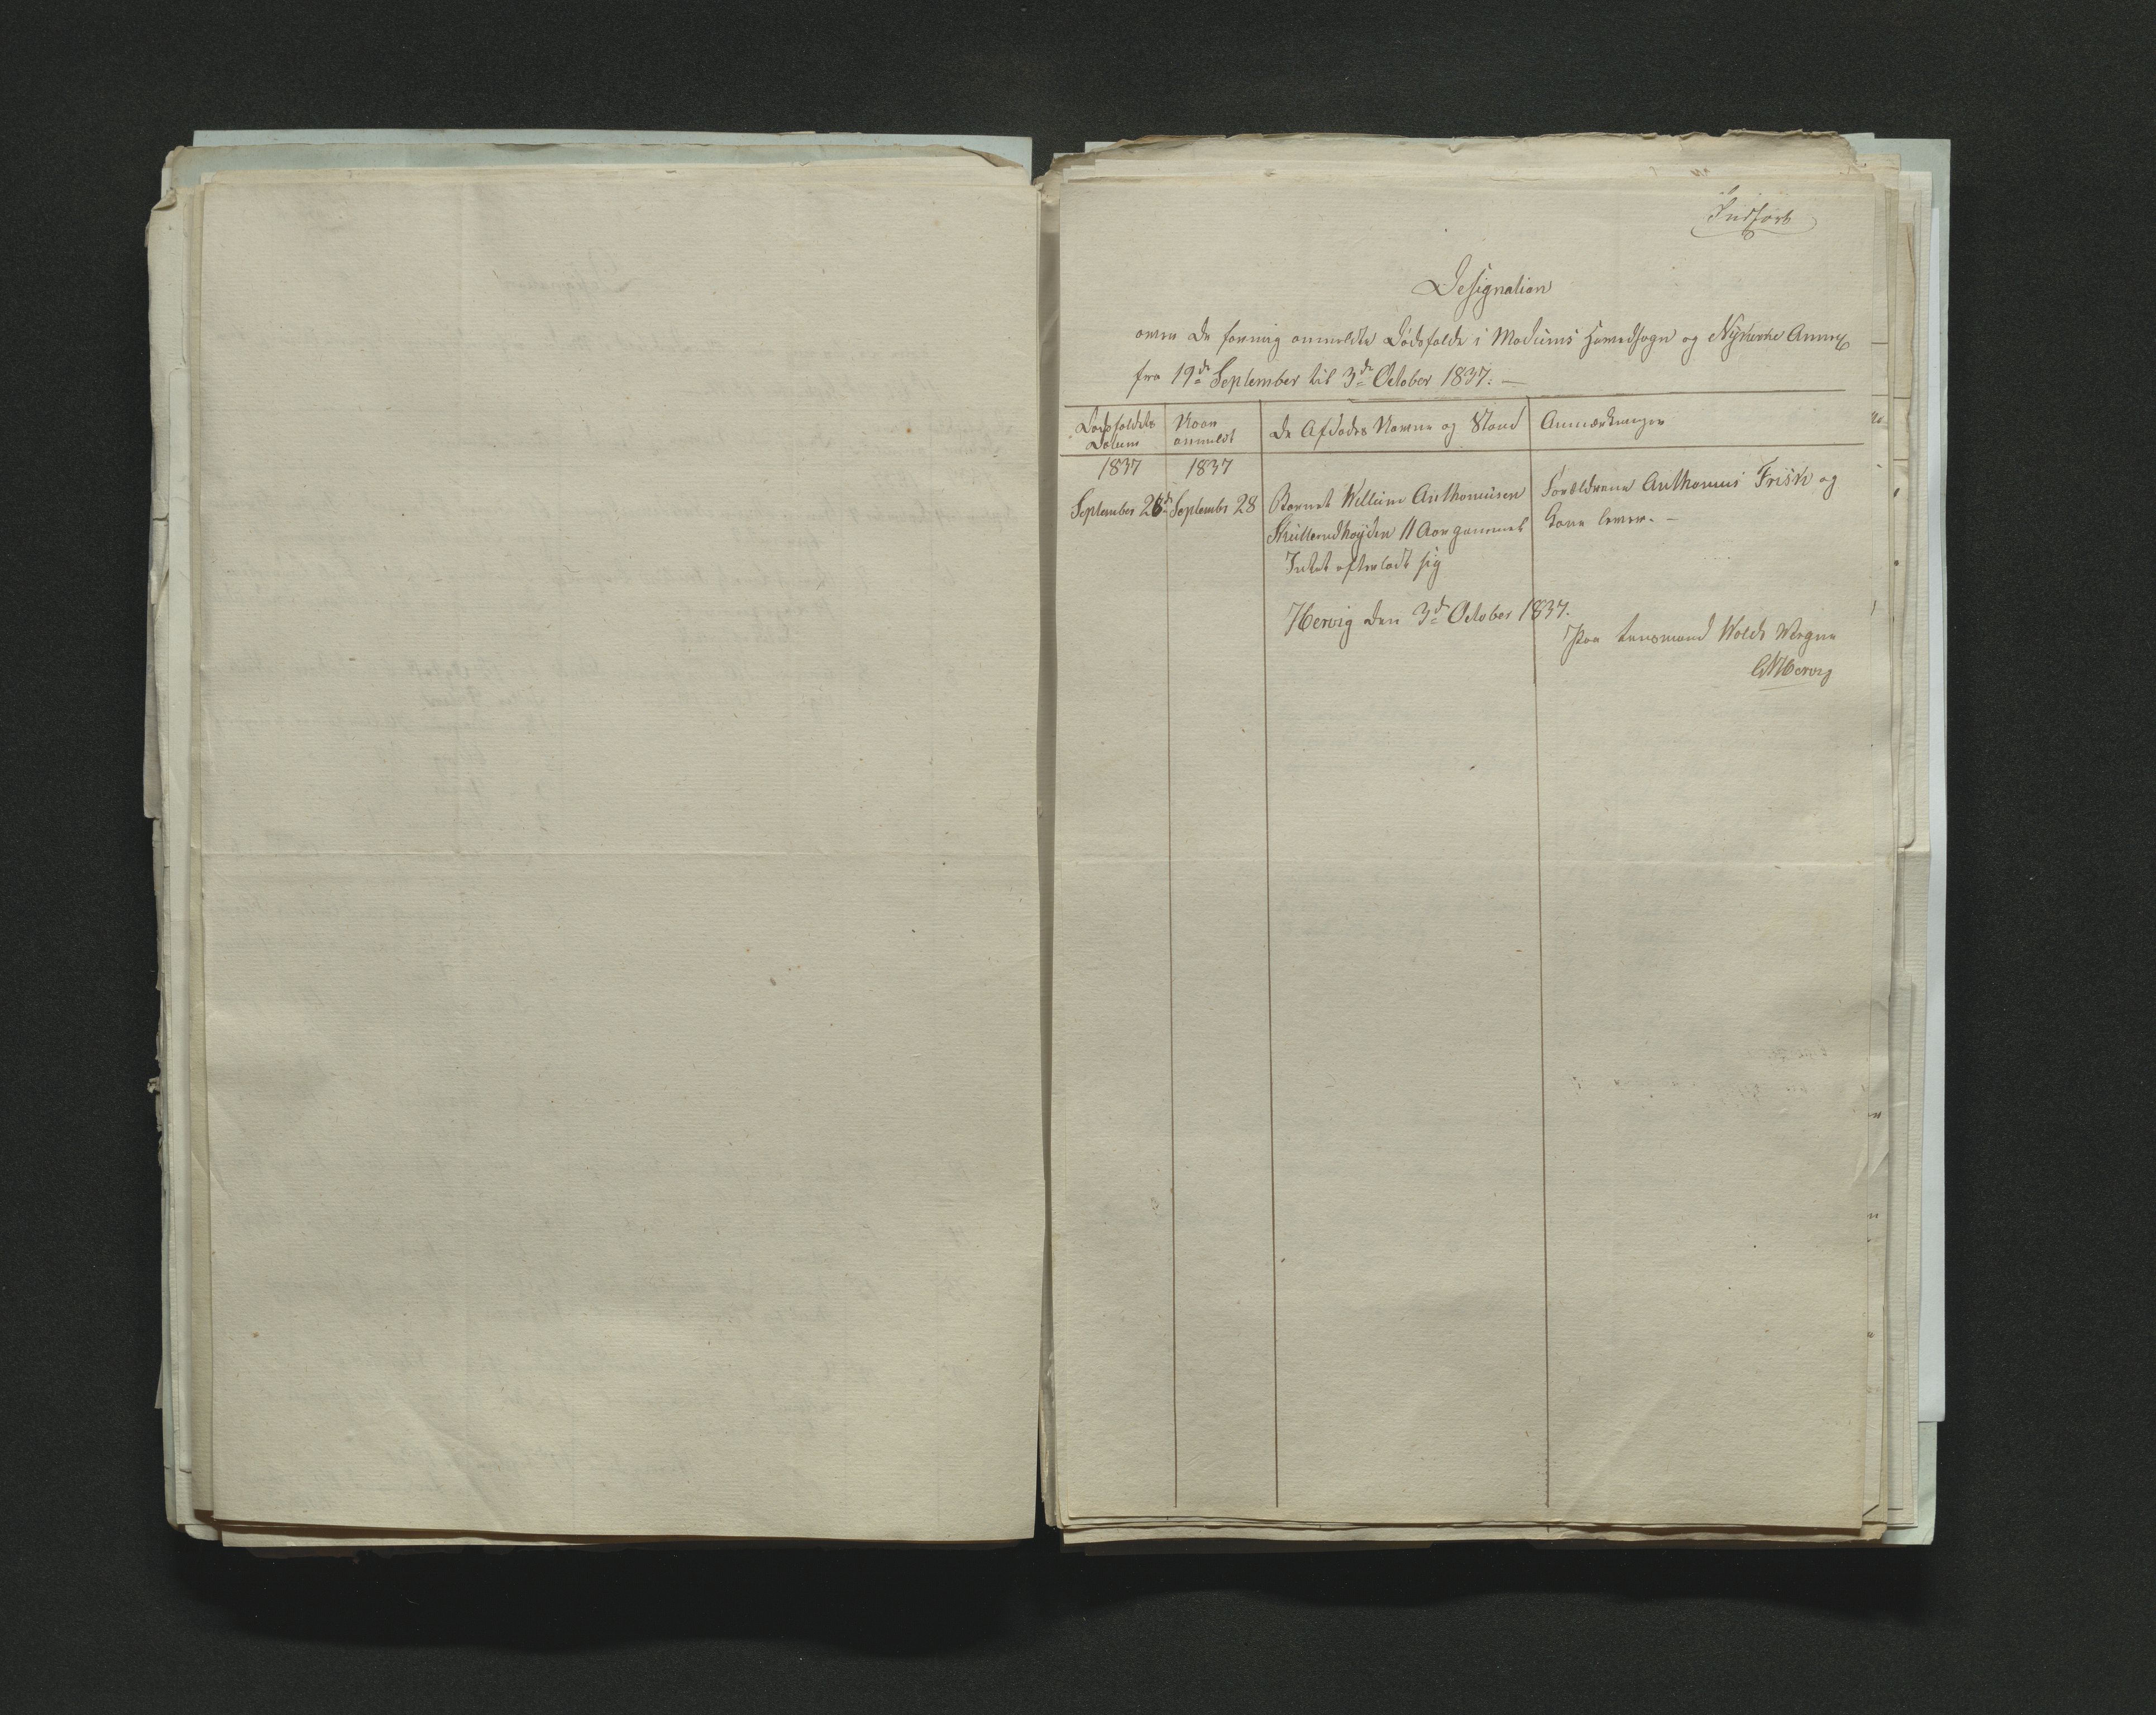 Indført
Designation
over de for mig anmeldte Dødsfalde i Modums Hovedsogn og Nykirke Annex
fra 19de September til 3de October 1837. —
Dødsfaldets Datum
Naar anmeldt
De Afdødes Navne og Stand
Anmærkninger
1837
1837
September 26de
Septembr 28
Barnet Willum Anthoniusen
Skutterudhøyden 11 Aar gammel
Intet efterladt sig
Forældrene Anthonius Frisk og
Kone lever. —
Hervig den 3de October 1837.
Paa Lensmand Wolds Vegne
Hervig